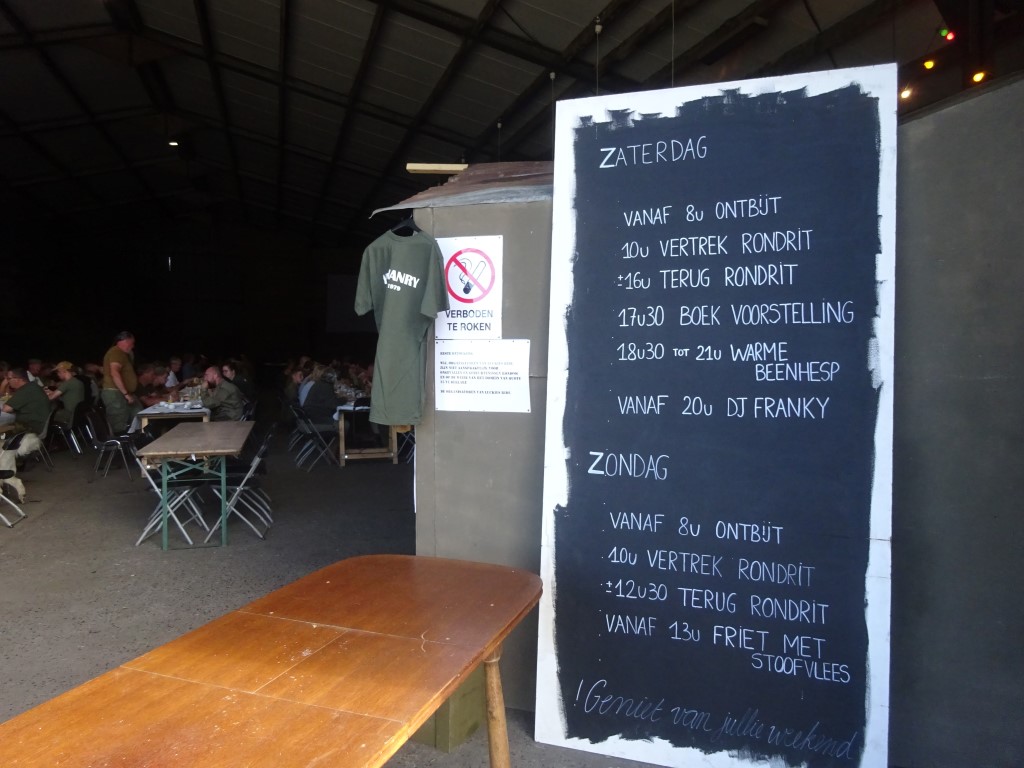 ZATERDAG
VANAF 8U ONTBIJT
10U VERTREK RONDRIT
±16U TERUG RONDRIT
17U30 BOEK VOORSTELLING
18U30 TOT 21U WARME
BEENHESP
VANAF 20U DJ FRANKY
ZONDAG
VANAF 8U ONTBIJT
10U VERTREK RONDRIT
±12U30 TERUG RONDRIT
VANAF 13U FRIET MET
STOOFVLEES
! Geniet van jullie weekend
1979
VERBODEN
TE ROKEN